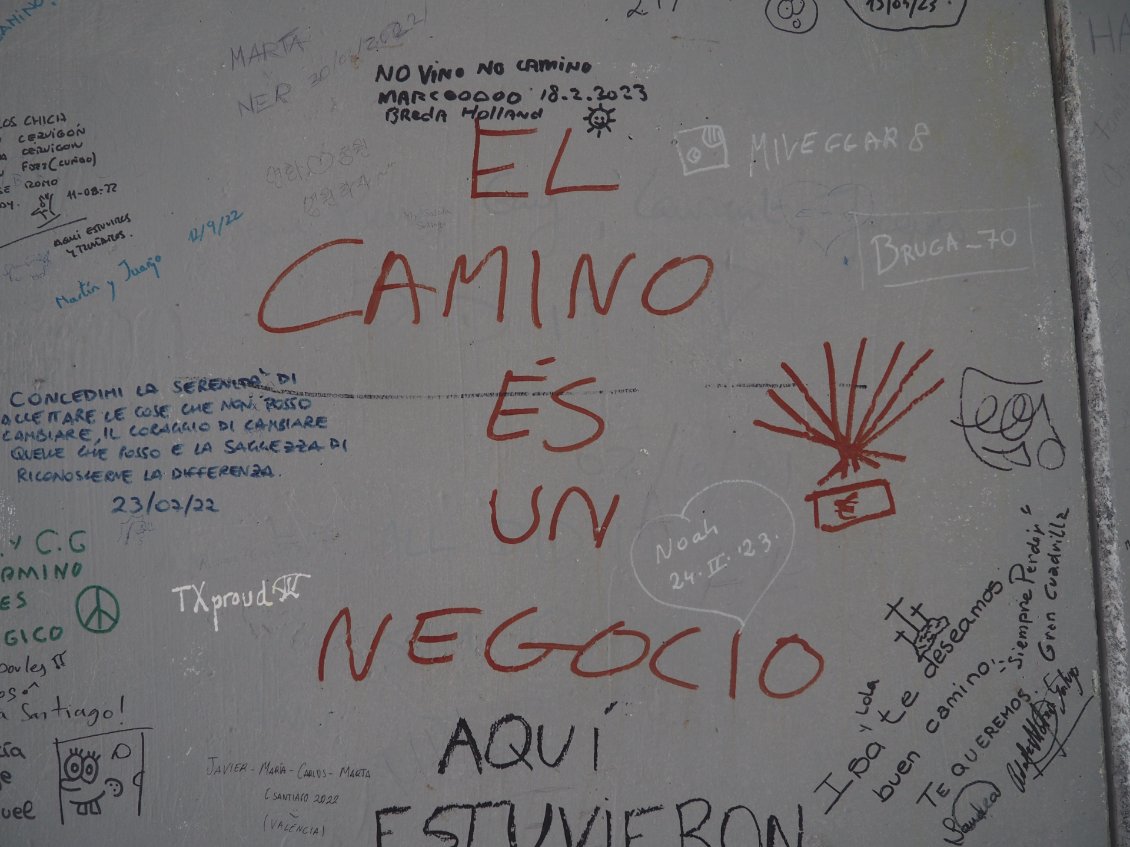 MARTA
NER 20/01/2022
NO VINO NO CAMINO
MARCOOOOO 18.2.2023
BREDA HOLLAND
13/04/23.
HA
OS CHICA
CERVIGÓN
CERVIGON
ROMO
11-08-22
AQUI ESTUVIMOS
12/9/22
Martín y Juanjo
MIVEGGAR 8
BRUGA_70
EL
CAMINO
ÉS
UN
NEGOCIO
€
CONCEDIMI LA SERENITA' DI
ACCETTARE LE COSE CHE NON POSSO
CAMBIARE, IL CORAGGIO DI CAMBIARE
QUELLE CHE POSSO E LA SAGGEZZA DI
RICONOSCERNE LA DIFFERENZA.
23/07/22
Y C.G
AMINO
ES
GICO
TXproud IV
Noah
24.II.'23.
Santiago!
uel
JAVIER - MARÍA - CARLOS - MARTA
(SANTIAGO 2022
(VALÈNCIA)
AQUÍ
ESTUVIERON
ISA Y Lola
te deseamos
buen camino!
TE QUEREMOS.
Sandra
"Siempre Perdir"
Gran Cuadrilla